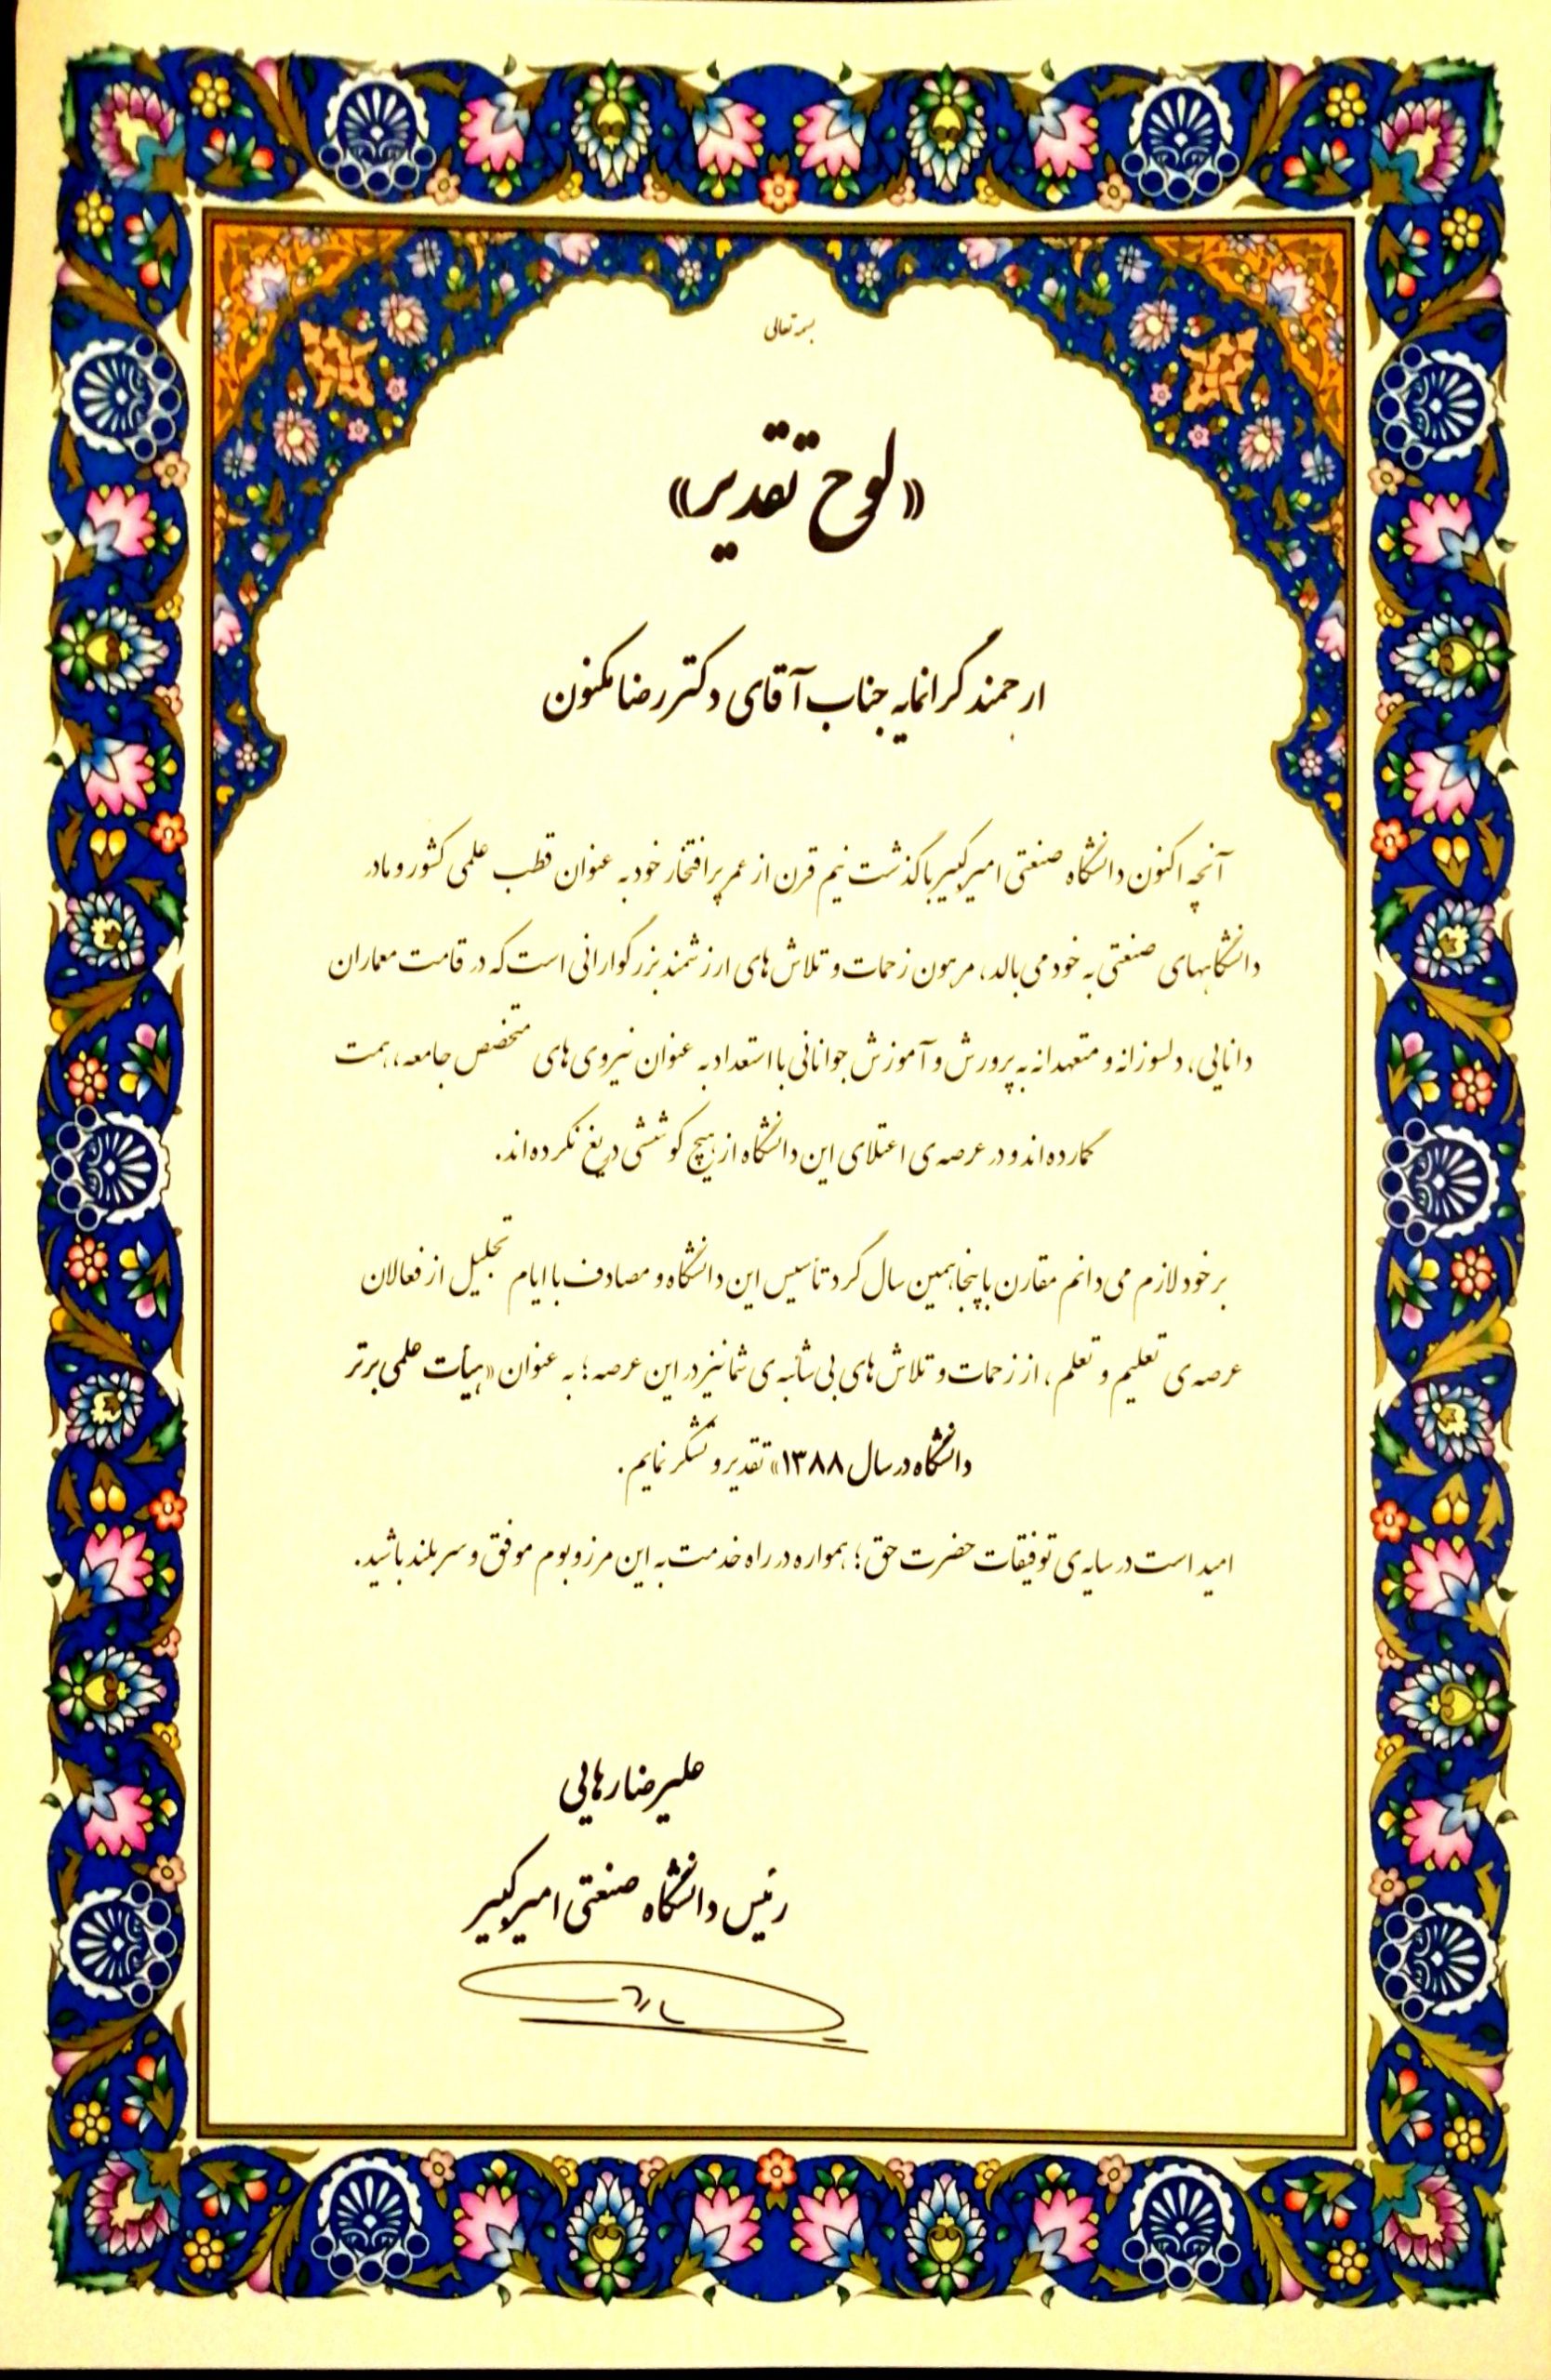 بسمه تعالی
«لوح تقدیر»
ارجمند گرانمایه جناب آقای دکتر رضا مکنون
آنچه اکنون دانشگاه صنعتی امیرکبیر با گذشت نیم قرن از عمر پرافتخار خود به عنوان قطب علمی کشور و مادر
دانشگاههای صنعتی به خود می بالد، مرهون زحمات و تلاش های ارزشمند بزرگوارانی است که در قامت معماران
دانایی، دلسوزانه و متعهدانه به پرورش و آموزش جوانانی با استعداد به عنوان نیروی های متخصص جامعه، همت
گمارده اند و در عرصه ی اعتلای این دانشگاه از هیچ کوششی دریغ نکرده اند.
بر خود لازم می دانم مقارن با پنجاهمین سال گرد تأسیس این دانشگاه و مصادف با ایام تجلیل از فعالان
عرصه ی تعلیم و تعلم، از زحمات و تلاش های بی شائبه ی شما نیز در این عرصه؛ به عنوان «هیأت علمی برتر
دانشگاه در سال ۱۳۸۸» تقدیر و تشکر نمایم.
امید است در سایه ی توفیقات حضرت حق؛ همواره در راه خدمت به این مرز و بوم موفق و سربلند باشید.
علیرضا رهایی
رئیس دانشگاه صنعتی امیرکبیر